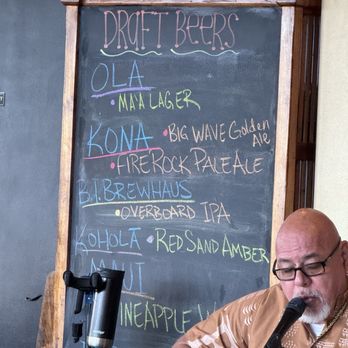 DRAFT BEERS
OLA
• MA'A LAGER
KONA • BIG WAVE Golden
Ale
• FIRE ROCK PALE ALE
B.I. BREWHAUS
• OVERBOARD IPA
KOHOLĀ • RED SAND AMBER
MAUI
PINEAPPLE